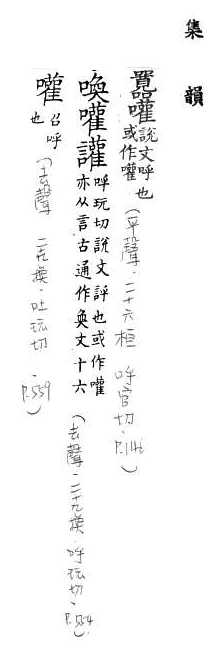 集韻
嚾說文呼也或作嚾(平聲.二十六桓 呼官切.P.146)
喚嚾讙呼玩切說文評也或作嚾亦从言古通作奐文十六(去聲.二十九換.呼玩切.P.554)
嚾召呼也(去聲 二九換.吐玩切.P.559)